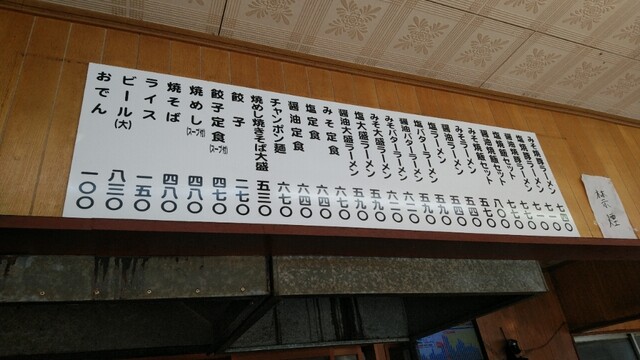 みそ焼豚ラーメン 七四〇
塩焼豚ラーメン 七一〇
醤油焼豚ラーメン 七一〇
塩焼飯セット 七七〇
醤油焼飯セット 七七〇
みそ焼飯セット 八〇〇
みそラーメン 五七〇
醤油ラーメン 五四〇
塩ラーメン 五四〇
塩バターラーメン 五九〇
醤油バターラーメン 五九〇
みそバターラーメン 六二〇
みそ大盛ラーメン 六二〇
塩大盛ラーメン 五九〇
醤油大盛ラーメン 五九〇
みそ定食 六七〇
塩定食 六四〇
醤油定食 六四〇
チャンポン麺 六七〇
焼めし焼きそば大盛 五三〇
餃子 二七〇
餃子定食(スープ付) 四七〇
焼めし(スープ付) 四八〇
焼そば 四八〇
ライス 一五〇
ビール(大) 八三〇
おでん 一〇〇
禁煙